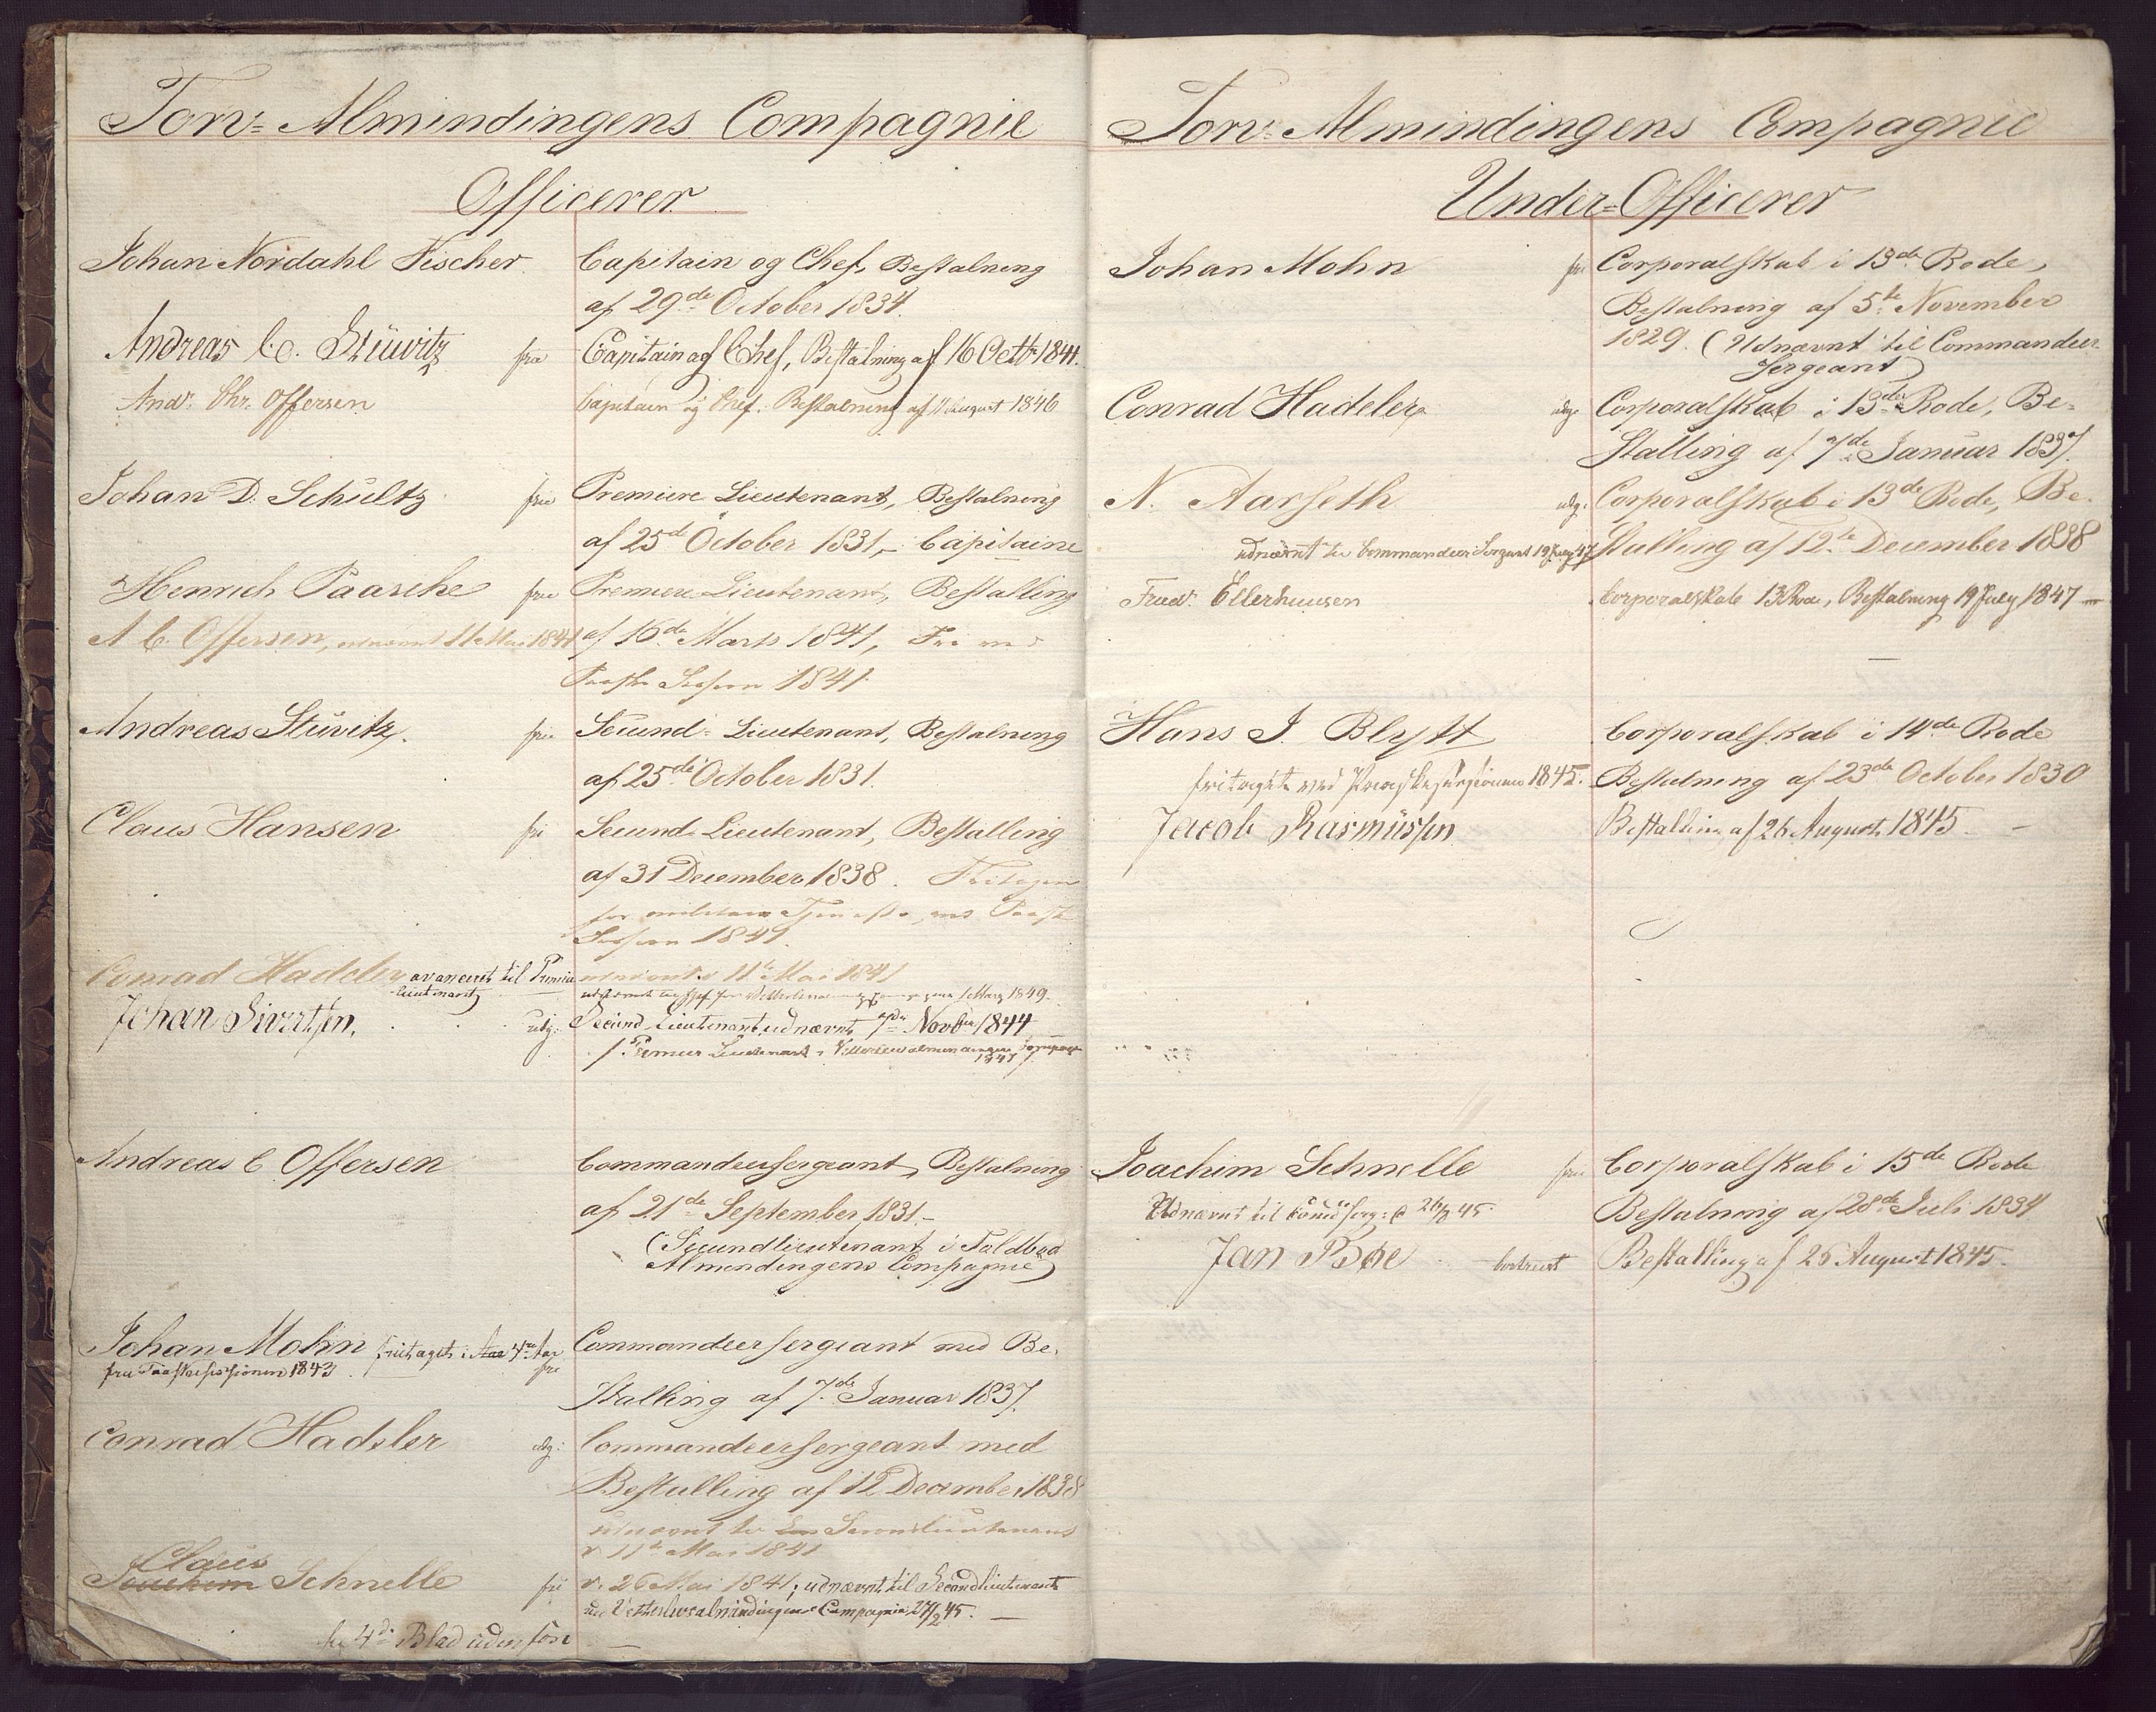 Torv-Almindingens Compagnie
Officerer
Johan Nordahl Fischer Capitain og Chef, Bestalning
af 29de October 1834.
Andreas C. Stüwitz fra Capitain og Chef, Bestalning af 16 Octb 1841.
Andr. Chr. Offersen Capitain og Chef. Bestalning af 11 August 1846
Johan D. Schultz fri Premiere Lieutenant, Bestalning
af 25de October 1831, Capitaine
Henrich Paasche fri Premiere Lieutenant, Bestalling
A C Offersen, udnævnt 11 Mai 1841 af 16de Marts 1841, Fri ved
Paaske Session 1841.
Andreas Stüvitz. fri Secund-Lieutenant, Bestalning
af 25de October 1831.
Claus Hansen fri Secund-Lieutenant, Bestalling
af 31 December 1838. Fritagen
for militair Tjeneste ved Paaske
Session 1841.
Conrad Hadeler avanceret til Premier udnævnt 11te Mai 1841
Lieutenant 1849.
Johan Sivertsen. udg: Secund Lieutenant, udnævnt 7de Novbr 1844
Premier Lieutenant i Compagnie
1847
Andreas C Offersen Commandeersergeant, Bestalning
af 21de September 1831.-
(Secundlieutenant i Toldbod
Almendingens Compagnie)
Johan Mohn fritaget i Aar 4 for Commandeersergeant med Be-
fra Paaskesessionen 1843. fri
stalling af 7de Januar 1837.
Conrad Hadeler udg: Commandeersergeant med
Bestalling af 12 December 1838
udnævnt til Secondlieutenant
v 11te Mai 1841
Claus
Joachim Schnelle fri v. 26 Mai 1841; udnævnt til Secondlieutenant
ved Vetterlivsalmindingens Compagnie 27/2 45. —
4de Blad uden for —
Torv-Almindingens Compagnie
Under-Officerer
Johan Mohn fri Corporalskab i 13de Rode,
Bestalning af 5te November
1829. (Udnævnt til Commandeer
Sergeant)
Conrad Hadeler udg. Corporalskab i 13de Rode, Be-
stalling af 7de Januar 1837.
N. Aarseth udg. Corporalskab i 13de Rode, Be-
udnævnt til Commandeer Sergeant 19 July 47 stalling af 12te December 1838
Fredr. Ellerhuusen Corporalskab 13 Rode, Bestalning 19 July 1847 —
Hans J. Blytt Corporalskab i 14de Rode
fritaget ved Paaskesessionen 1845. Bestalning af 23de October 1830
Jacob Rasmüssen Bestalling af 26 August 1845. —
Joachim Schnelle fri Corporalskab i 15de Rode
Udnævnt til Comdserg: 26/8 45. Bestalning af 28de Juli 1834
Jan Bøe bortreist Bestalling af 26 August 1845.